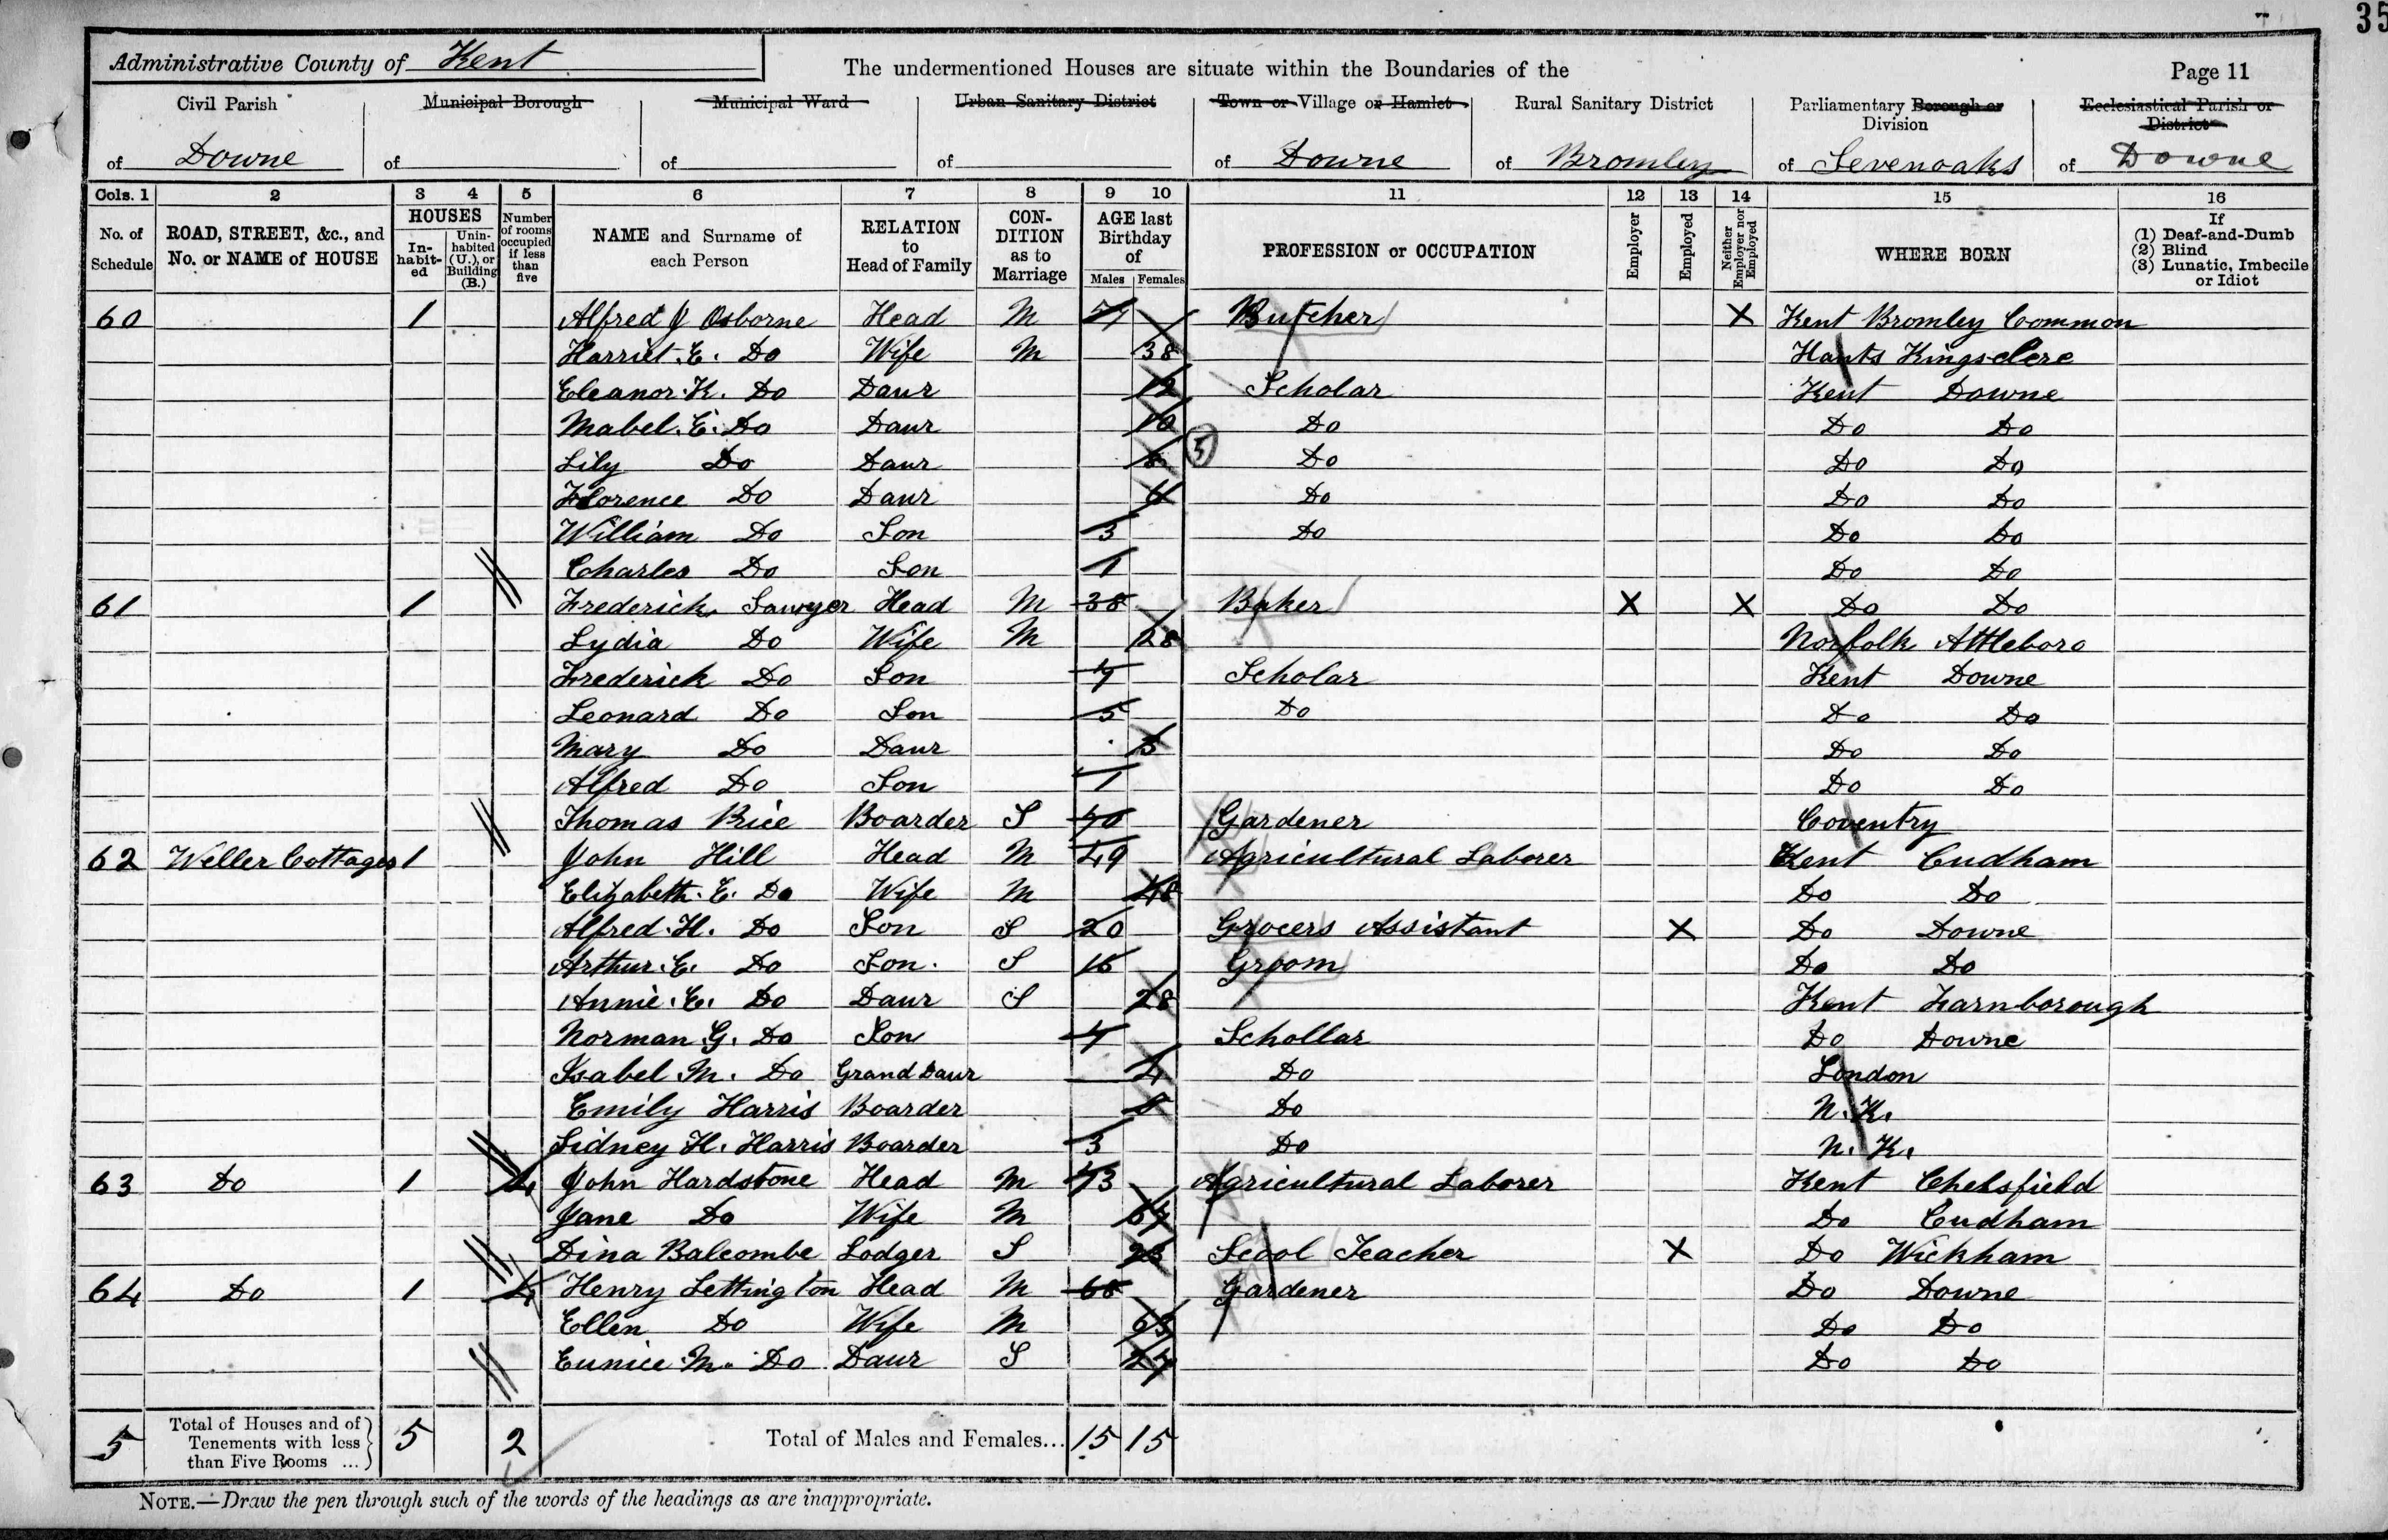 35
Administrative County of Kent
The undermentioned Houses are situate within the Boundaries of the
Page 11
Civil Parish of Downe
Municipal Borough of
Municipal Ward of
Urban Sanitary District of
Town or Village or Hamlet of Downe
Rural Sanitary District of Bromley
Parliamentary Borough or Division of Sevenoaks
Ecclesiastical Parish or District of Downe
Cols. 1 2 3 4 5 6 7 8 9 10 11 12 13 14 15 16
No. of Schedule
ROAD, STREET, &c., and No. or NAME of HOUSE
HOUSES
In-habit-ed
Unin-habited (U.), or Building (B.)
Number of rooms occupied if less than five
NAME and Surname of each Person
RELATION to Head of Family
CON-DITION as to Marriage
AGE last Birthday of
Males Females
PROFESSION or OCCUPATION
Employer
Employed
Neither Employer nor Employed
WHERE BORN
If (1) Deaf-and-Dumb (2) Blind (3) Lunatic, Imbecile or Idiot
60 1 Alfred J Osborne Head M Butcher X Kent Bromley Common
Harriet. E. Do Wife M 38 Hants Kingsclere
Eleanor. K. Do Daur 12 Scholar Kent Downe
Mabel. E. Do Daur 10 Do Do Do
Lily Do Daur 8 5 Do Do Do
Florence Do Daur Do Do Do
William Do Son 3 Do Do Do
Charles Do Son 1 Do Do
61 1 Frederick Sawyer Head M 38 Baker X X Do Do
Lydia Do Wife M 28 Norfolk Attleboro
Frederick Do Son 7 Scholar Kent Downe
Leonard Do Son 5 Do Do Do
Mary Do Daur 3 Do Do
Alfred Do Son 1 Do Do
Thomas Price Boarder S 70 Gardener Coventry
62 Weller Cottages 1 John Hill Head M 49 Agricultural Laborer Kent Cudham
Elizabeth. E. Do Wife M 48 Do Do
Alfred. H. Do Son S 20 Grocers Assistant X Do Downe
Arthur. E. Do Son. S 16 Groom Do Do
Annie. E. Do Daur S 28 Kent Farnborough
Norman. G. Do Son 7 Schollar Do Downe
Isabel. M. Do Grand Daur 4 Do London
Emily Harris Boarder Do N. K.
Sidney H. Harris Boarder 3 Do N. K.
63 Do 1 4 John Hardstone Head M 73 Agricultural Laborer Kent Chelsfield
Jane Do Wife M 67 Do Cudham
Dina Balcombe Lodger S 23 Scool Teacher X Do Wickham
64 Do 1 4 Henry Lettington Head M 68 Gardener Do Downe
Ellen Do Wife M 63 Do Do
Eunice M. Do Daur S 27 Do Do
5 Total of Houses and of Tenements with less than Five Rooms ... 5 2 Total of Males and Females... 15 15
NOTE.—Draw the pen through such of the words of the headings as are inappropriate.